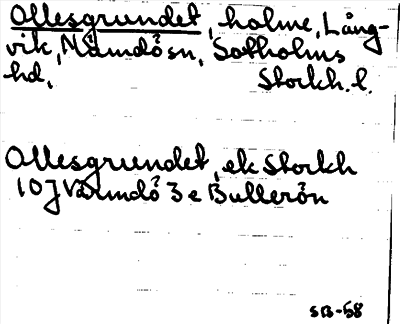 Ollesgrundet, holme, Lång-
vik, Nämdö sn, Sotholms
hd, Stockh. l.
Ollesgrundet, ek Stockh
10J Värmdö 3 e Bullerön
SB-58